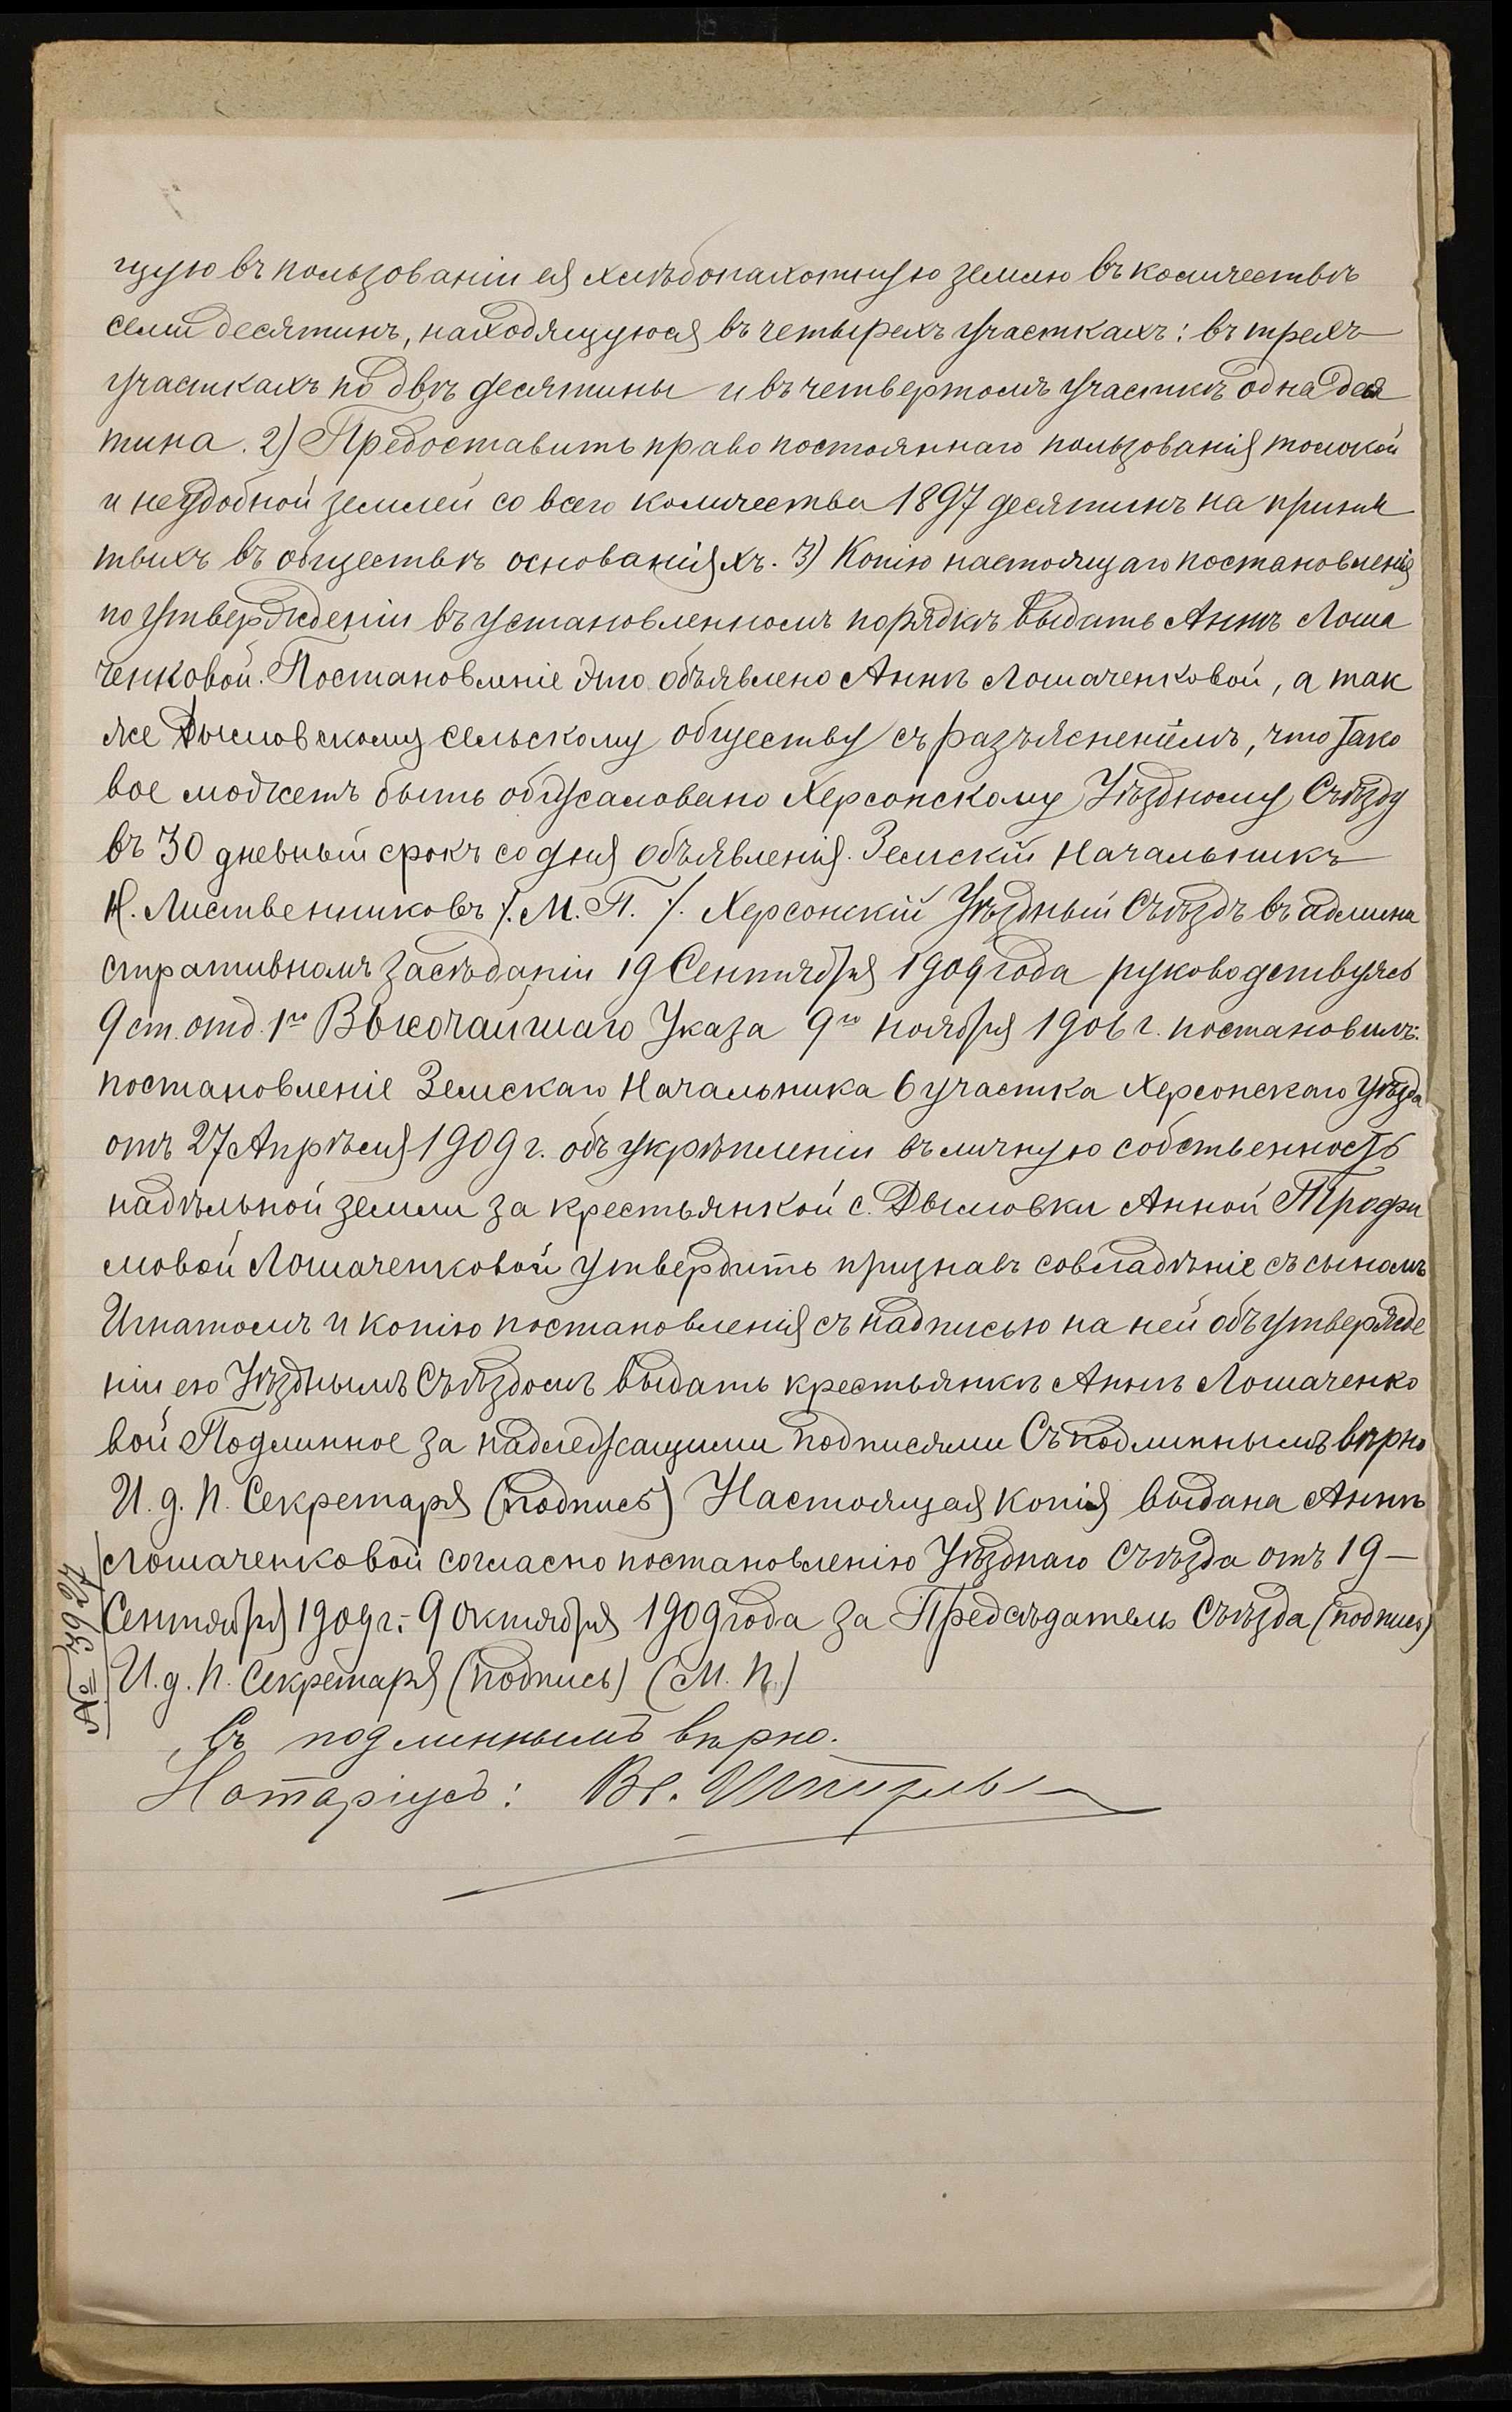 щую въ пользованіи ея хлѣбопахотную землю въ количествѣ
семи десятинъ, находящуюся въ четырехъ участкахъ: въ трехъ
участкахъ по двѣ десятины и въ четвертомъ участкѣ одна деся
тина. 2) Предоставить право постояннаго пользованія толокой
и неудобной землей со всего количества 1897 десятинъ на приня
тыхъ въ обществѣ основаніяхъ. 3) Копію настоящаго постановленія
по утвержденіи въ установленномъ порядкѣ выдать Аннѣ Лоша
ченковой. Постановленіе это объявлено Аннѣ Лошаченковой, а так
же Дымовскому сельскому обществу съ разъясненіемъ, что тако
вое можетъ быть обжаловано Херсонскому Уѣздному Съѣзду
въ 30 дневный срокъ со дня объявленія. Земскій Начальникъ
Н. Лиственниковъ /. М. П. /. Херсонскій Уѣздный Съѣздъ въ админи
стративномъ засѣданіи 19 Сентября 1909 года руководствуясь
9 ст. отд. 1го Высочайшаго Указа 9го ноября 1906 г. постановилъ:
постановленіе Земскаго Начальника 6 участка Херсонскаго уѣзда
отъ 27 Апрѣля 1909 г. объ укрѣпленіи въ личную собственность
надѣльной земли за крестьянкой с. Дымовки Анной Трофи
мовой Лошаченковой утвердить признавъ совладѣніе съ сыномъ
Игнатомъ и копію постановленія съ надписью на ней объ утвержде
ніи ею Уѣзднымъ Съѣздомъ выдать крестьянкѣ Аннѣ Лошаченко
вой Подлинное за надлежащими подписями Съ подлиннымъ вѣрно
И. д. П. Секретаря (подпись) Настоящая копія выдана Аннѣ
Лошаченковой согласно постановленію Уѣзднаго Съѣзда отъ 19 –
Сентября 1909 г. – 9 Октября 1909 года за Предсѣдатель Съѣзда (подпись)
И. д. П. Секретаря (подпись) (М. П.)
№ 3927
Съ подлиннымъ вѣрно.
Нотаріусъ: Вл.